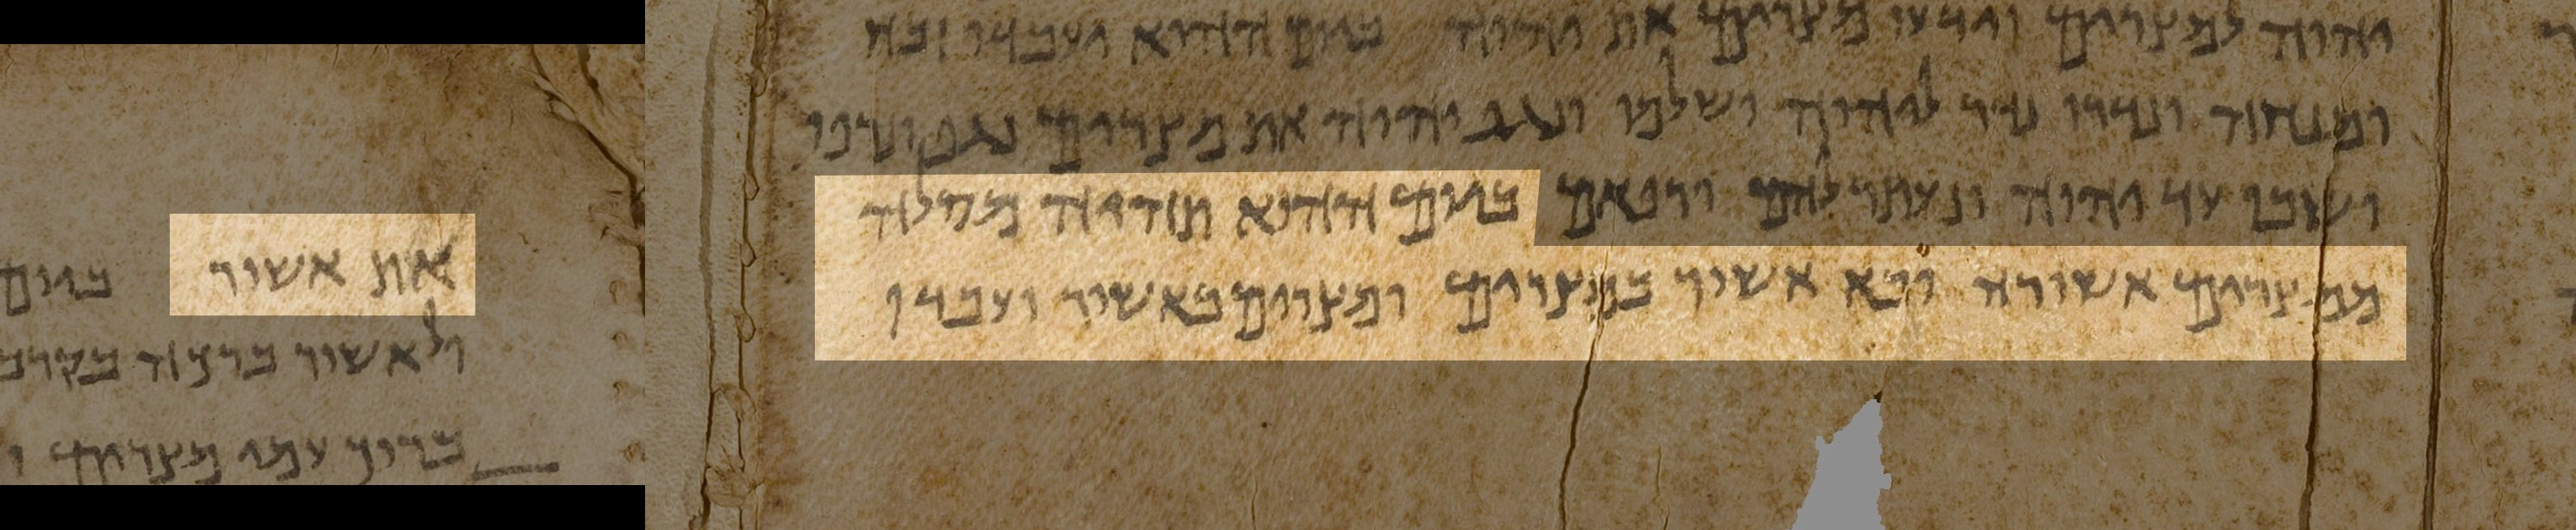 יהוה למצרים וידעו מצרים את יהוה ביום ההוא ועבדו זבח
ומנחה ונדרו נדר ליהוה ושלמו ונגף יהוה את מצרים נגף ורפו
ושבו עד יהוה ונעתר להם ורפאם ביום ההוא תהיה מסלה
ממצרים אשורה ובא אשור במצרים ומצרים באשור ועבדו
את אשור ביום
ולאשור ברכה בקרב
ברוך עמי מצרים ו